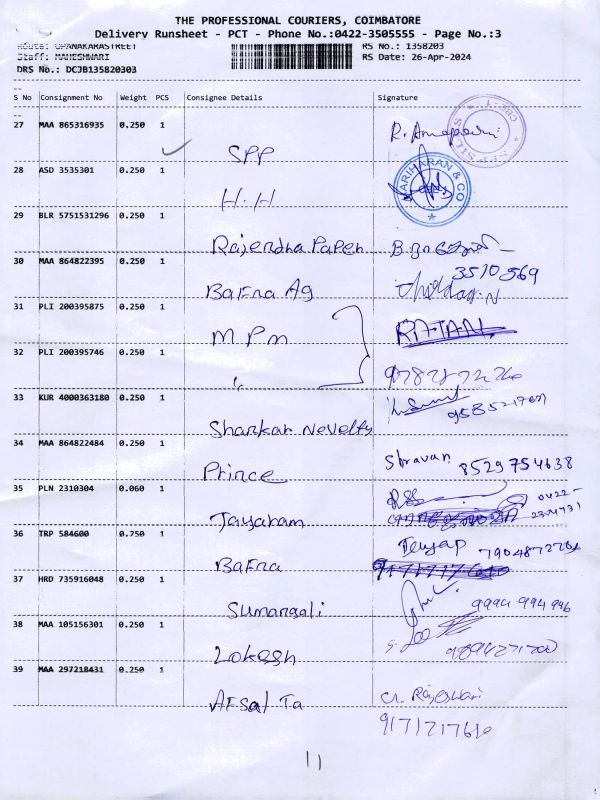 THE PROFESSIONAL COURIERS, COIMBATORE
Delivery Runsheet - PCT - Phone No.:0422-3505555 - Page No.:3
Route: OPANAKARASTREET RS No.: 1358203
Staff: MAHESHWARI RS Date: 26-Apr-2024
DRS No.: DCJB135820303
S No Consignment No Weight PCS Consignee Details Signature
27 MAA 865316935 0.250 1
SPP
28 ASD 3535301 0.250 1
H.H HARIHARAN & CO
29 BLR 5751531296 0.250 1
Rajendha Papen
30 MAA 864822395 0.250 1 3510569
Bafna Ag
31 PLI 200395875 0.250 1
MPM RATAN
32 PLI 200395746 0.250 1
"
33 KUR 4000363180 0.250 1
Shankar Novelty
34 MAA 864822484 0.250 1 Shravan 8529754638
Prince
35 PLN 2310304 0.060 1 0422-
Jayaram
36 TRP 584600 0.750 1 7904872781
Bafna
37 HRD 735916048 0.250 1
Sumangali 9994 994 996
38 MAA 105156301 0.250 1
Lokesh
39 MAA 297218431 0.250 1
Afsal Ta
9171717610
11